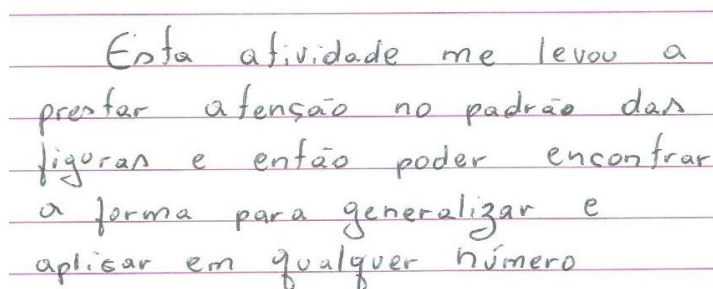 Esta atividade me levou a
prestar atenção no padrão das
figuras e então poder encontrar
a forma para generalizar e
aplicar em qualquer número